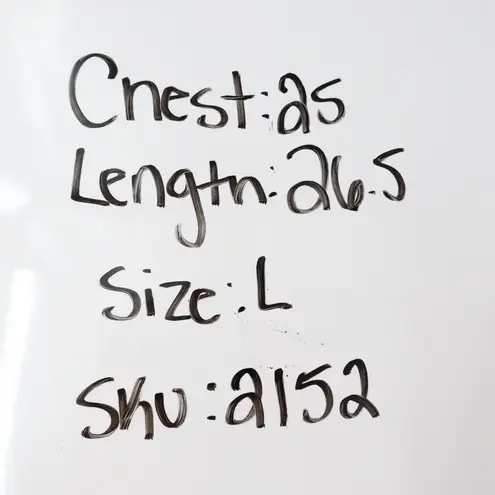 Chest: 25
Length: 26.5
Size: L
Sku: 2152